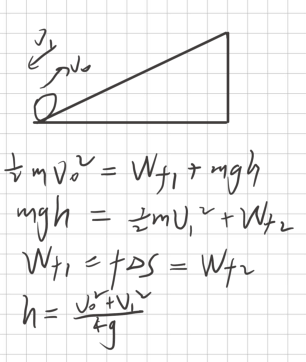 v₁
v₀
½mv₀² = W_f₁ + mgh
mgh = ½mv₁² + W_f₂
W_f₁ = fΔs = W_f₂
h = (v₀² + v₁²)/4g